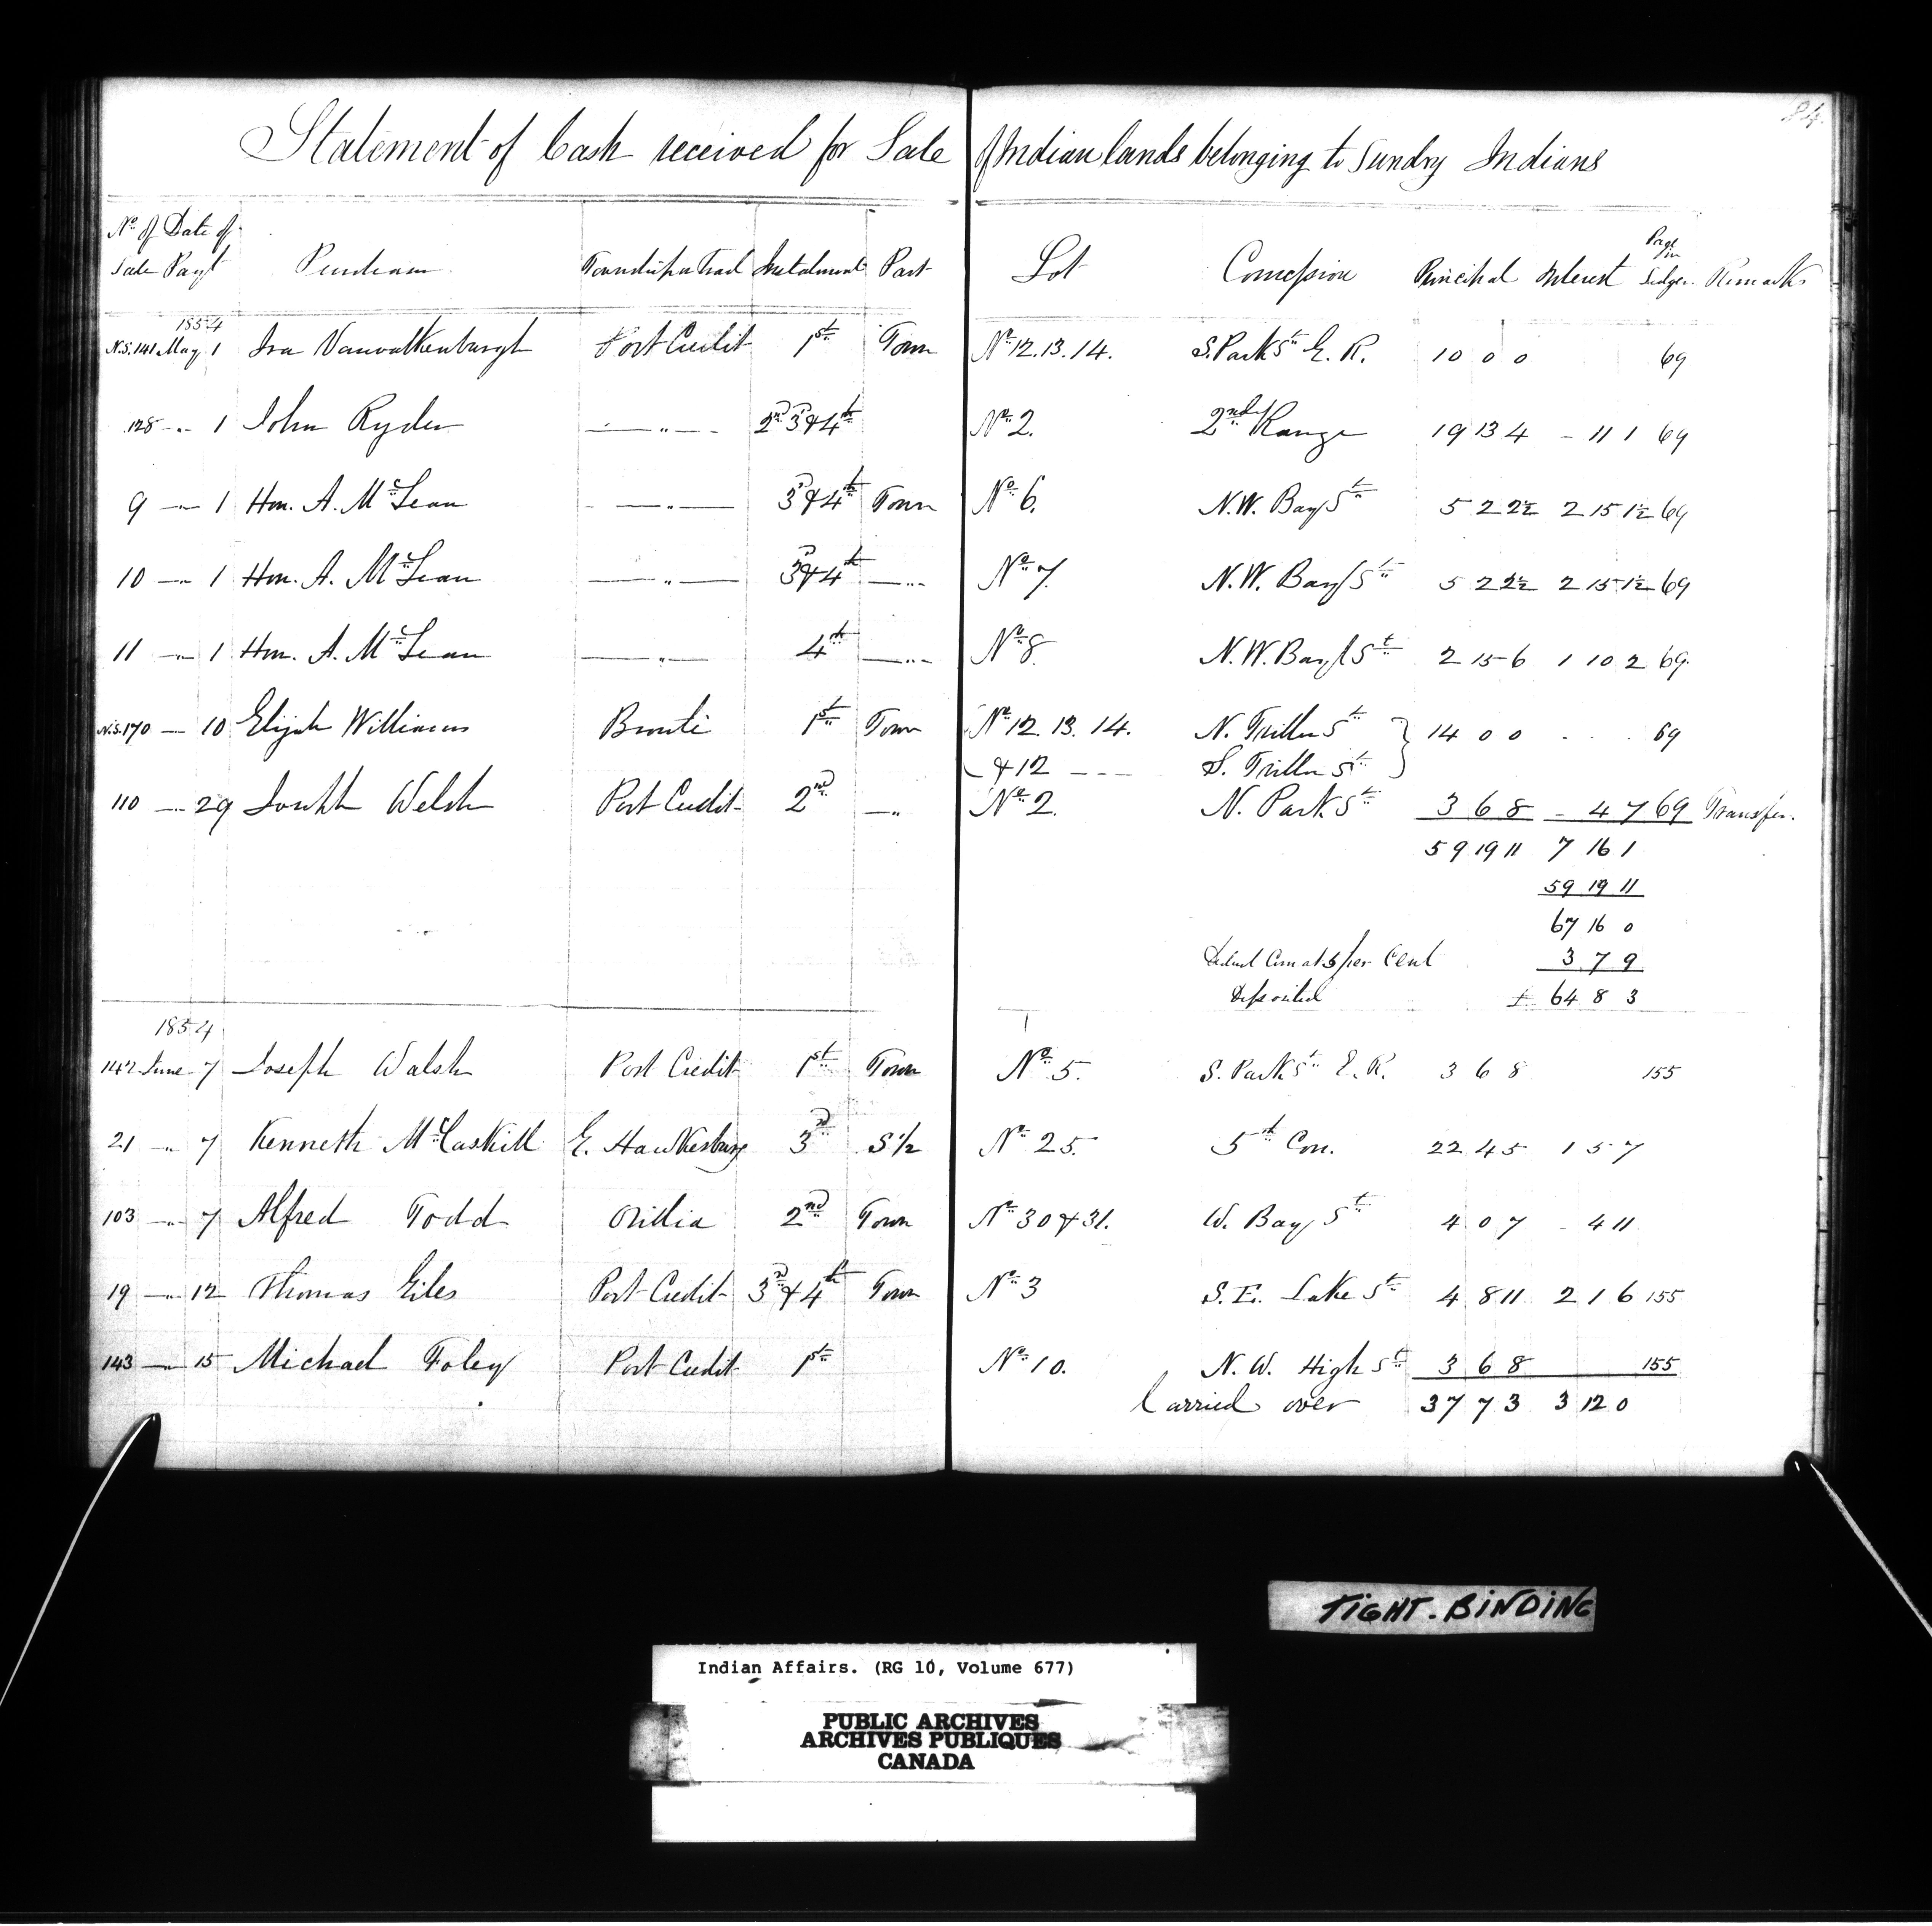 84.
Statement of Cash received for Sale of Indian lands belonging to Sundry Indians
No. of Sale Date of Payt Purchaser Township or Tract Instalment Part Lot Concession Principal Interest Page in Ledger Remarks
1854
N.S. 141 May 1 Ira Vanvalkenburgh Port Credit 1st Town No. 12. 13. 14. S. Park St. E. R. 10 0 0 69
128 -"- 1 John Ryder —"— 2nd 3d & 4th No. 2. 2nd Range 19 13 4 - 11 1 69
9 -"- 1 Hon. A. McLean —"— 3d & 4th Town No. 6. N.W. Bay St. 5 2 2½ 2 15 1½ 69
10 -"- 1 Hon. A. McLean —"— 3d & 4th —"— No. 7. N.W. Bay St. 5 2 2½ 2 15 1½ 69
11 -"- 1 Hon. A. McLean —"— 4th —"— No. 8. N.W. Bay St. 2 15 6 1 10 2 69.
N.S. 170 — 10 Elijah Williams Bronte 1st Town No. 12. 13. 14. N. Triller St. } 14 0 0 . . . 69
& 12 --- S. Triller St.
110 -"- 29 Welsh Port Credit 2nd —"— No. 2. N. Park St. 3 6 8 - 4 7 69 Transfer.
59 19 11 7 16 1
59 19 11
67 16 0
Deduct Com at 5 per cent 3 7 9
Deposited £ 64 8 3
1854
142 June 7 Joseph Walsh Port Credit 1st Town No. 5. S. Park St. E. R. 3 6 8 155
21 -"- 7 Kenneth McCaskill E. Hawkesbury 3rd S ½ No. 25. 5th Con. 22 4 5 1 5 7
103 -"- 7 Alfred Todd Orillia 2nd Town No. 30 & 31. W. Bay St. 4 0 7 - 4 11
19 -"- 12 Thomas Giles Port Credit 3rd & 4th Town No. 3 S. E. Lake St. 4 8 11 2 1 6 155
143 -"- 15 Michael Foley Port Credit 1st No. 10. N. W. High St. 3 6 8 155
Carried over 37 7 3 3 12 0
TIGHT-BINDING
Indian Affairs. (RG 10, Volume 677)
PUBLIC ARCHIVES
ARCHIVES PUBLIQUES
CANADA